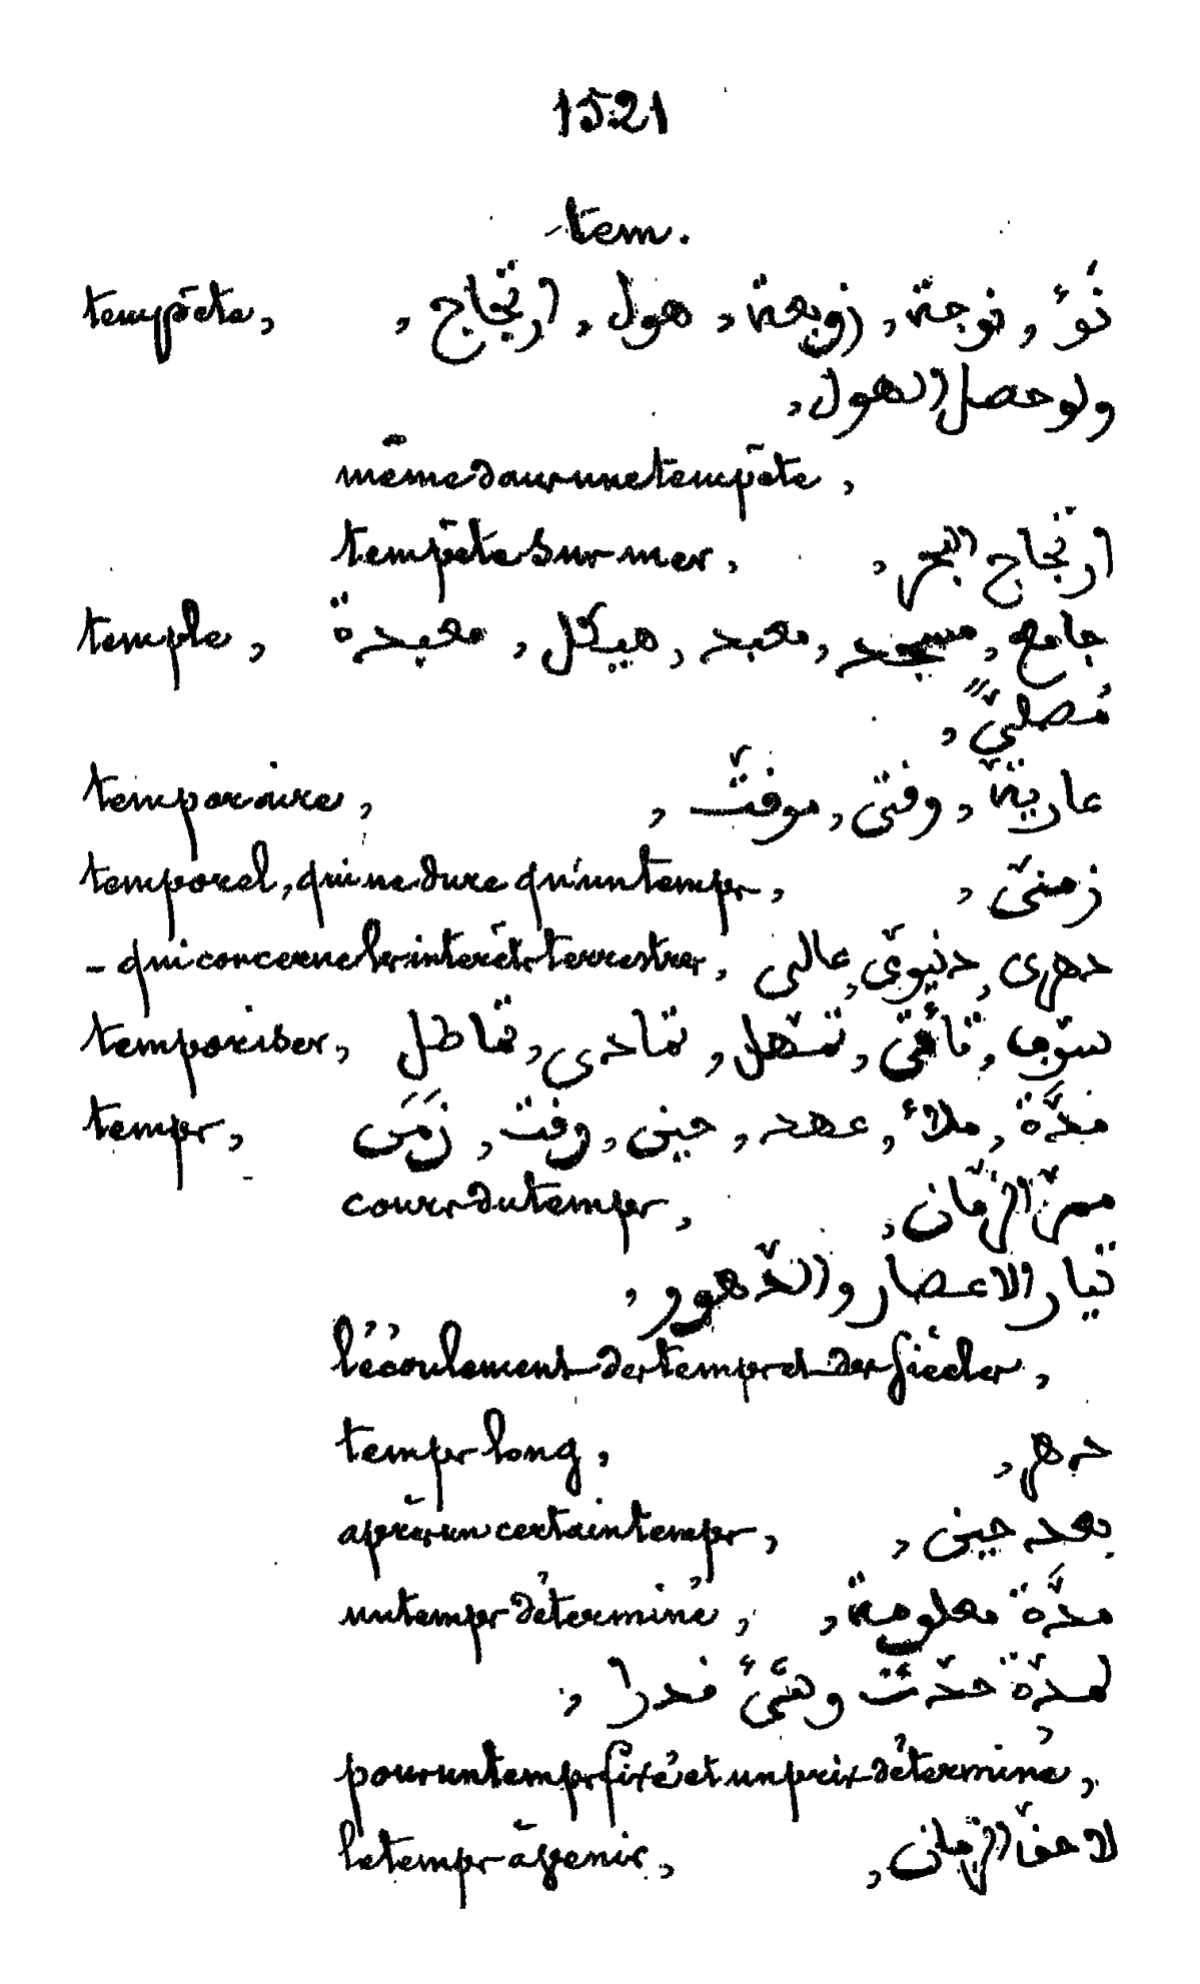 1521
tem.
tempête, نَوْء, نوجة, زوبعة, هول, ارتجاج,
ولو حصل الهول,
même dans une tempête,
tempête sur mer, ارتجاج البحر,
temple, جامع, مسجد, معبد, هيكل, معبدة
مُصلّىً,
temporaire, عاريّة, وقتى, موقّت,
temporel, qui ne dure qu'un temps, زمنىّ,
- qui concerne les intérêts terrestres, دهرى, دنيوىّ, عالمى
temporiser, سوّف, تأنّى, تمهّل, تمادى, تماطل
temps, مدَّة, ملاء, عهد, حين, وقت, زَمَن
cours du temps, ممرّ الزّمان,
تيار الاعصار والدّهور,
l'écoulement des temps et des siècles,
temps long, دهر,
après un certain temps, بعد حين,
un temps déterminé, مدَّة معلومة,
لمدّة حدّت وهىّء قدرا,
pour un temps fixé et un prix déterminé,
le temps à venir, لاحق الزّمان,